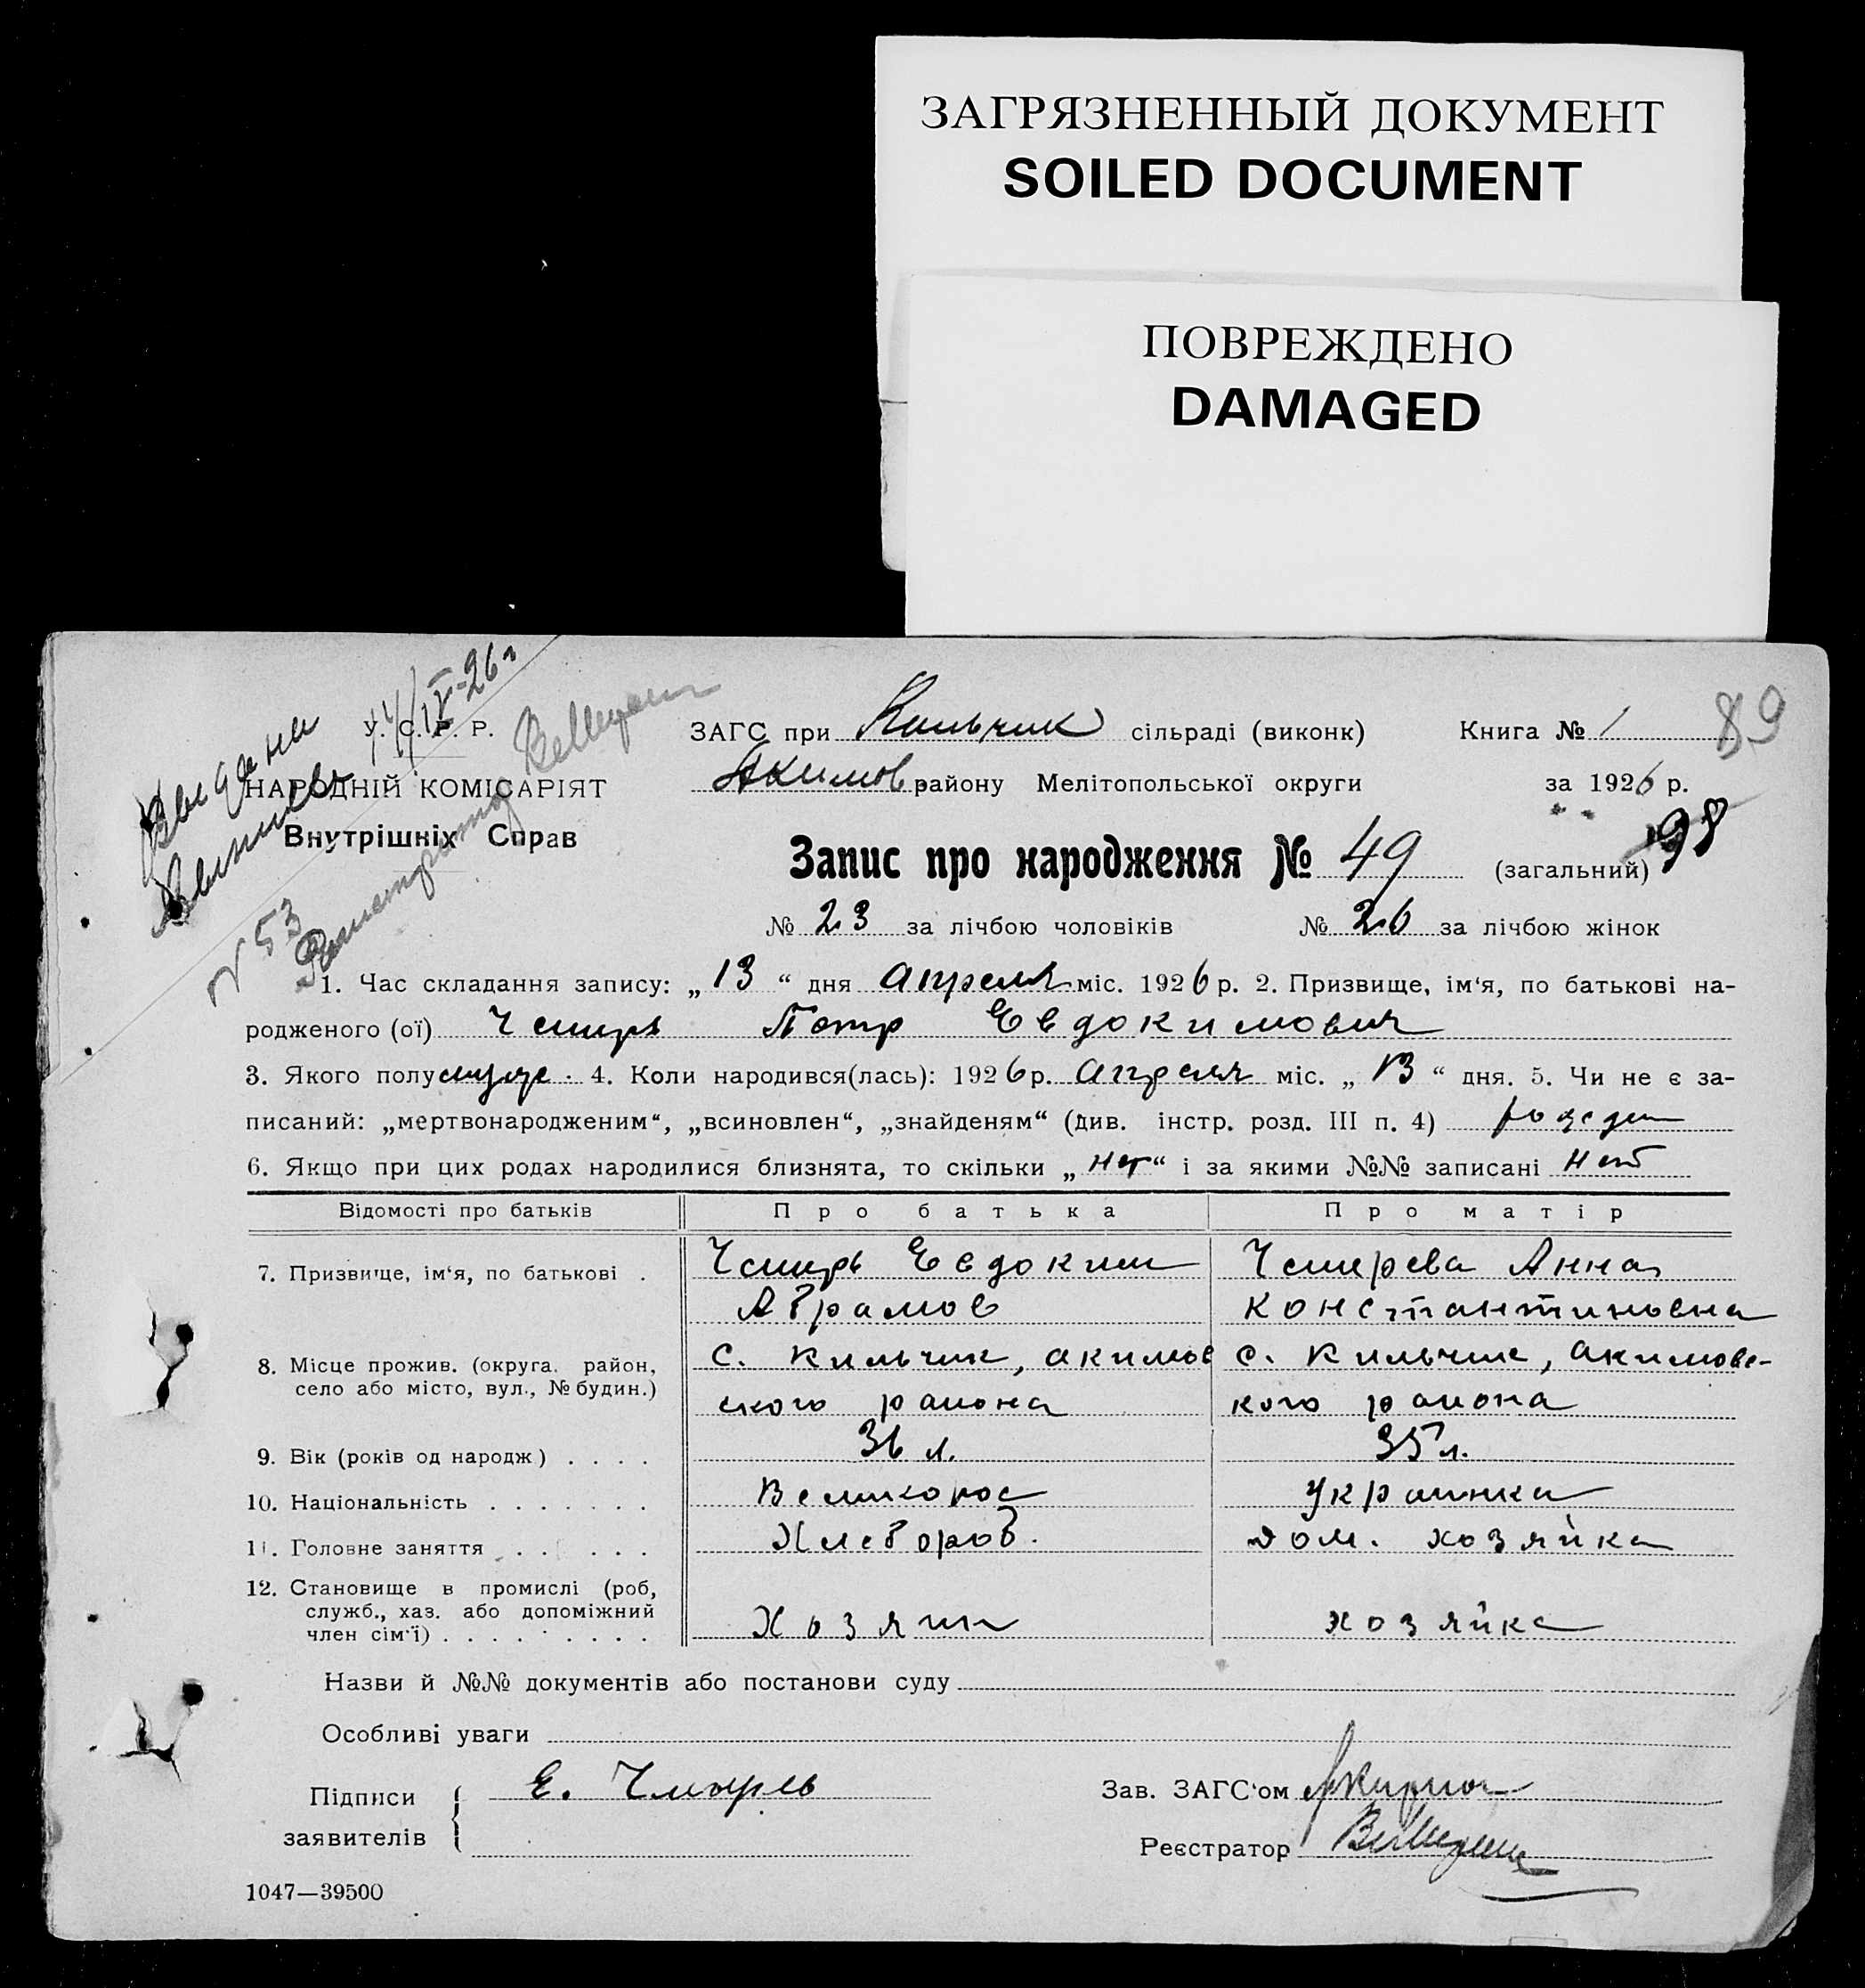 ЗАГРЯЗНЕННЫЙ ДОКУМЕНТ
SOILED DOCUMENT
ПОВРЕЖДЕНО
DAMAGED
14/IV-26 г
89
У. С. Р. Р.
ЗАГС при Кильчик сільраді (виконк) Книга № 1
НАРОДНІЙ КОМІСАРІЯТ
Акимов району Мелітопольської округи за 1926 р.
Внутрішніх Справ
98
Запис про народження № 49 (загальний)
№ 23 за лічбою чоловіків № 26 за лічбою жінок
N 53
1. Час складання запису: „ 13 “ дня апреля міс. 1926 р. 2. Призвище, ім‘я, по батькові на-
родженого (ої) Петр Евдокимович
3. Якого полу 4. Коли народився(лась): 1926 р. апреля міс. „ 13 “ дня. 5. Чи не є за-
писаний: „мертвонародженим“, „всиновлен“, „знайденям“ (див. інстр. розд. III п. 4)
6. Якщо при цих родах народилися близнята, то скільки „ нет “ і за якими №№ записані нет
Відомості про батьків Про батька Про матір
7. Призвище, ім‘я, по батькові . Евдоким Анна
Абрамов Константиновна
8. Місце прожив. (округа, район, с. Кильчик, акимов с. Кильчик, акимовс-
село або місто, вул., № будин.)
ского района кого района
9. Вік (років од народж) . . . . 36 л. 35 л.
10. Національність . . . . . . . Великорос Украинка
11. Головне заняття . . . . . . Хлебороб. дом. хозяйка
12. Становище в промислі (роб,
служб., хаз. або допоміжний
член сім‘ї) . . . . . . . . . Хозяин хозяйка
Назви й №№ документів або постанови суду
Особливі уваги
Підписи Е. Зав. ЗАГС‘ом
заявителів
Реєстратор
1047—39500